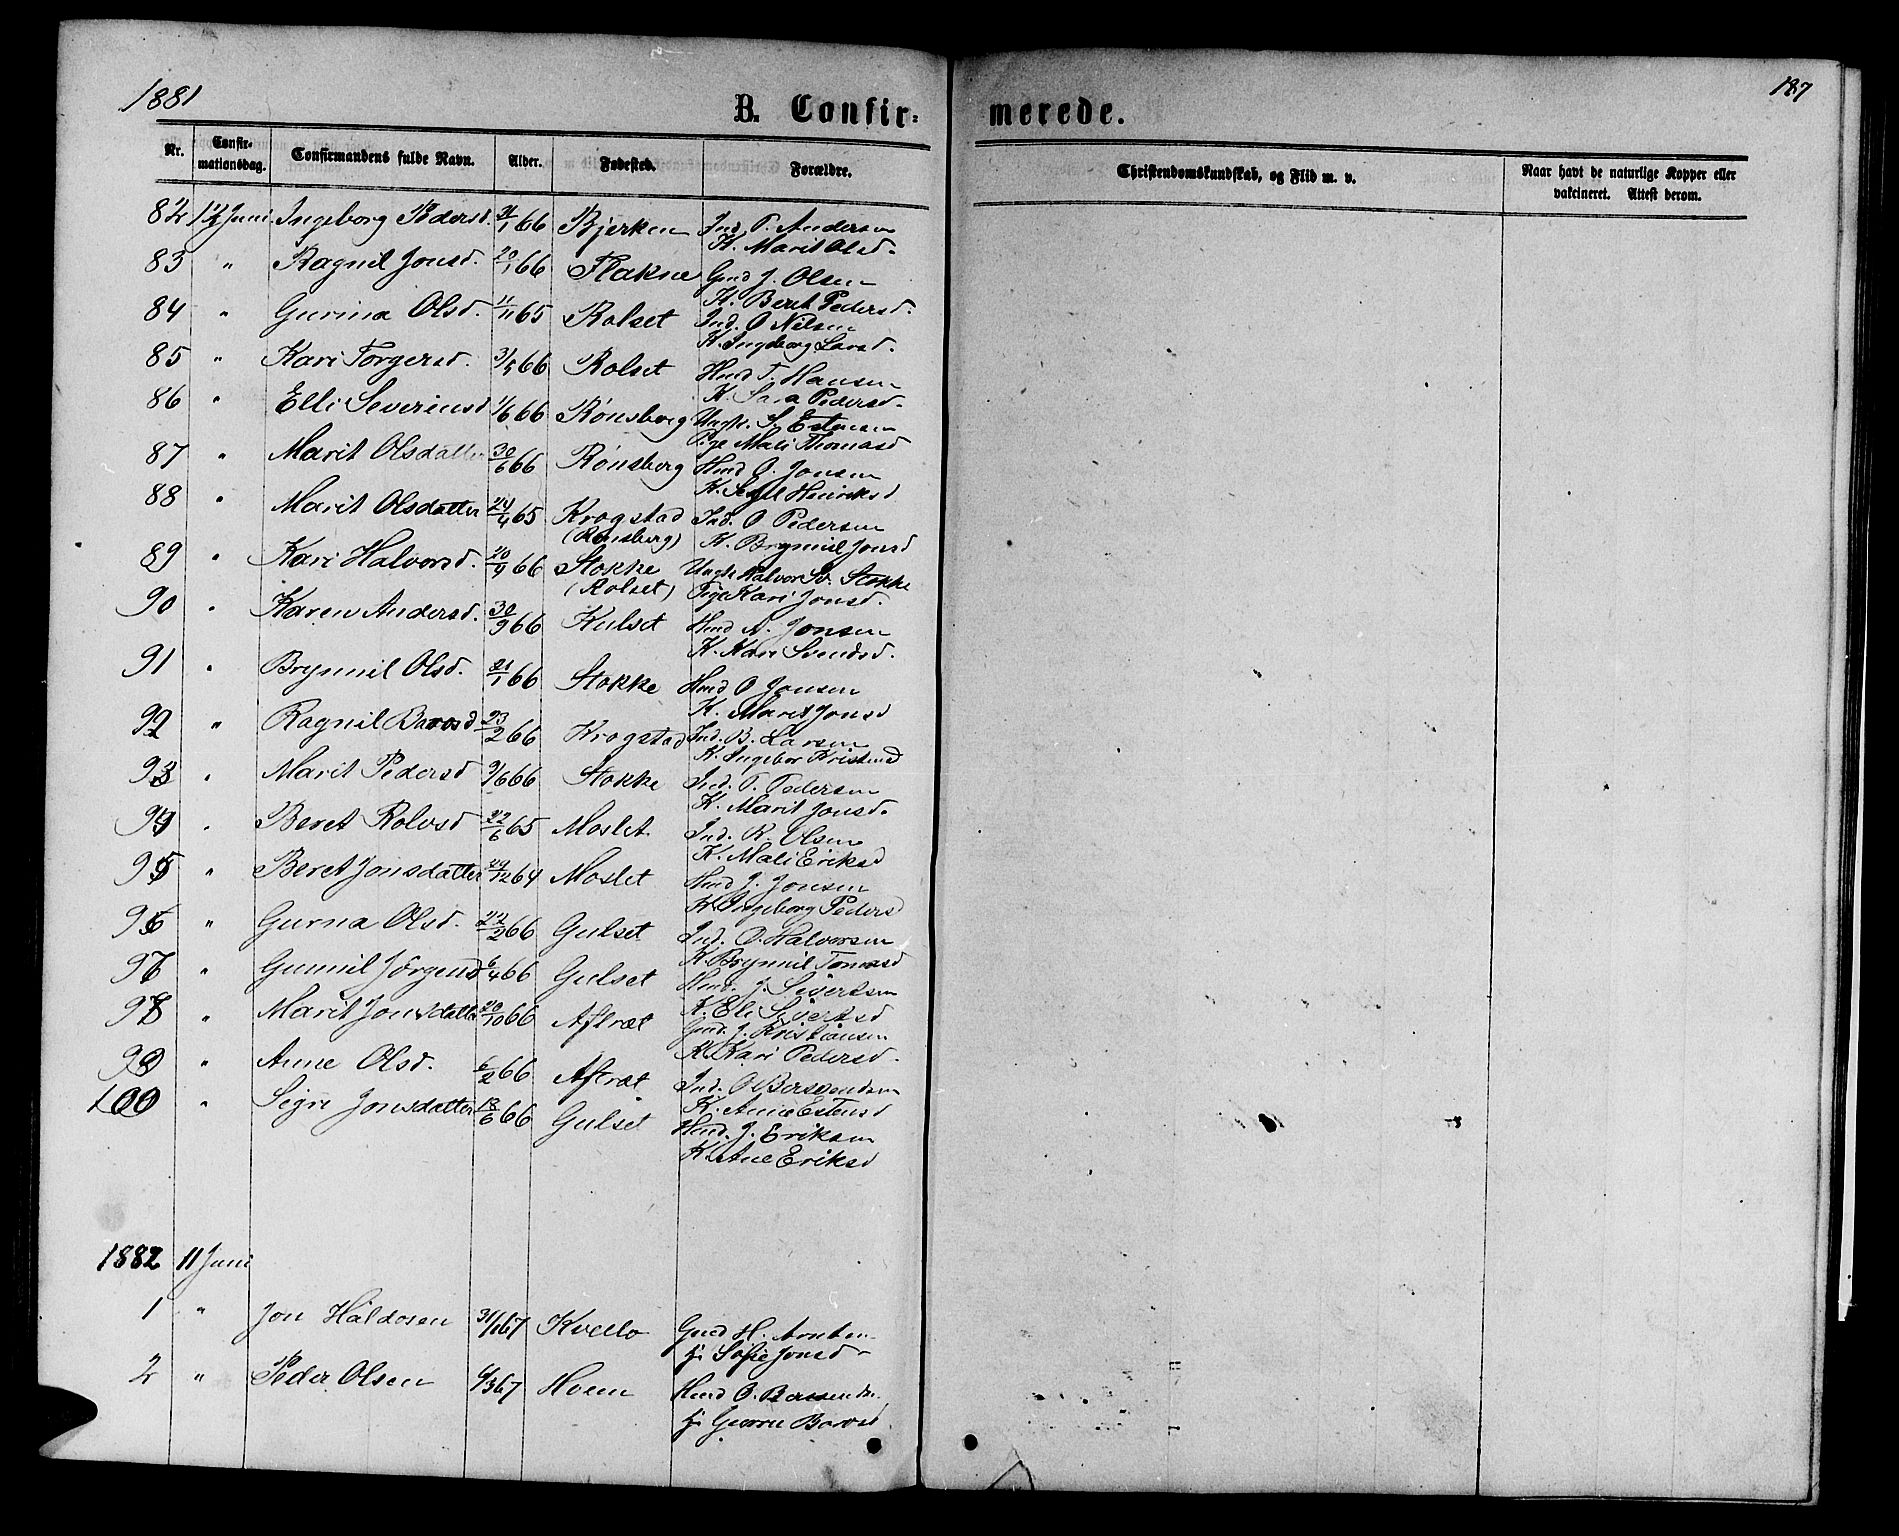 1881
B. Confir-
merede.
187
Nr. Confirmationsdag. Confirmandens fulde Navn. Alder. Fødested. Forældre. Christendomskundskab, og Flid m. v. Naar havt de naturlige Kopper eller vakcineret. Attest derom.
82 12 Juni Ingeborg Pedersd. 21/1 66 Bjerken Ind. P. Andersen
K. Marit Olsd.
83 " Ragnil Jonsd. 20/1 66 Flakne Gmd J. Olsen
K. Beret Pedersd.
84 " Gurina Olsd. 11/11 65 Rolset Ind. O Nilsen
K. Ingeborg Larsd.
85 " Kari Torgersd. 3/5 66 Rolset Hmd T. Hansen
K. Sara Pedersd.
86 " Elli Severinsd 1/6 66 Rønsberg Ungk. S. Estensen
Pige Mali Thomasd
87 " Marit Olsdatter 30/6 66 Rønsberg Hmd O. Jonsen
K. Henriksd
88 " Marit Olsdatter 24/4 65 Krogstad Ind. O Pedersen
(Rønsberg) K. Brynnil Jonsd
89 " Kari Halvorsd. 20/9 66 Stokke Ungk Halvor Sv. Stokke
(Rolset) Pige Kari Jonsd.
90 " Karen Andersd. 30/9 66 Kulset Hmd A. Jonsen
K. Kari Svendsd.
91 " Brynnil Olsd. 21/1 66 Stokke Hmd O Jonsen
K. Marit Jonsd
92 " Ragnil Baarosd 23/2 66 Krogstad Ind. B. Larsen
K. Ingebor Kristensd
93 " Marit Pedersd 9/6 66 Stokke Ind. P. Pedersen
K. Marit Jonsd.
94 " Beret Rolvsd 22/6 65 Moslet Ind. R. Olsen
K. Mali Eriksd
95 " Beret Jonsdatter 24/12 64 Moslet Hmd J. Jonsen
K. Ingeborg Pedersd
96 " Gurna Olsd. 22/2 66 Gulset Ind. O. Halvorsen
K. Brynnil Tomasd
97 " Gunnil Jørgensd 6/4 66 Gulset Hmd. J. Sivertsen
K. Eli Sivertsd
98 " Marit Jonsdatter 20/10 66 Aftret Gmd. J. Kristiansen
K. Kari Pedersd.
99 " Anne Olsd. 6/2 66 Aftret Ind. O Bersvendsen
K. Ane Estensd
100 " Sigri Jonsdatter 18/6 66 Gulset Hmd. J. Eriksen
K. Ane Eriksd
1882 11 Juni
1 " Jon Haldosen 31/1 67 Kvello Gmd H. Arntsen
h Sofie Jonsd
2 " Peder Olsen 6/3 67 Hoem Hmd O.
h Barosd